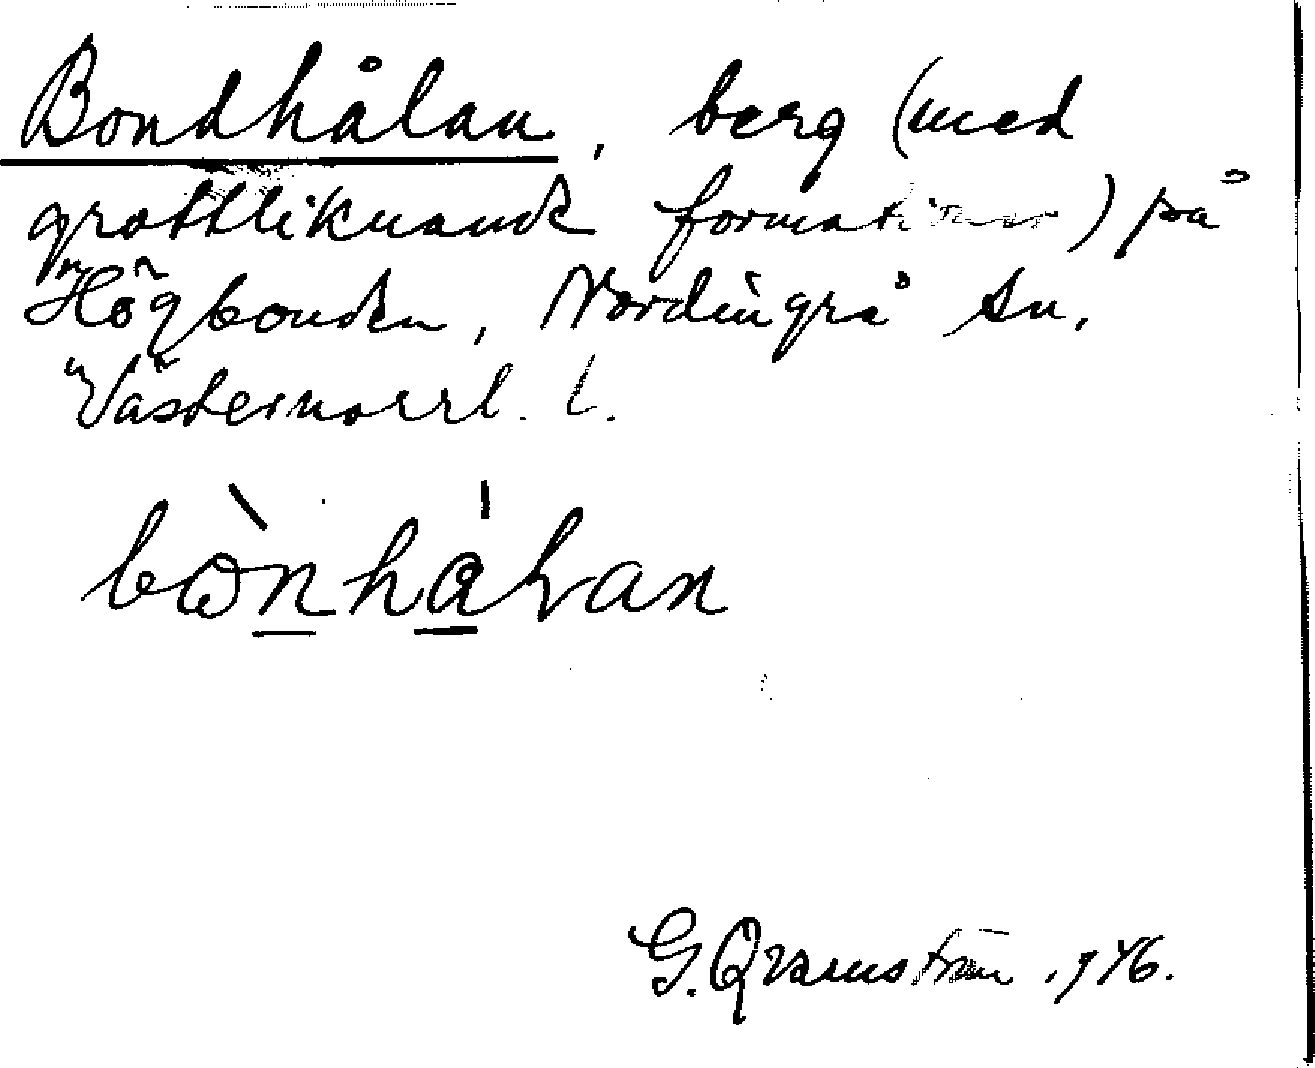 Bondhålan, berg (med
grottliknande formationer) på
Högbonden, Nordingrå sn,
Västernorrl. l.
bònhálan
G. Qvarnström, 1946.